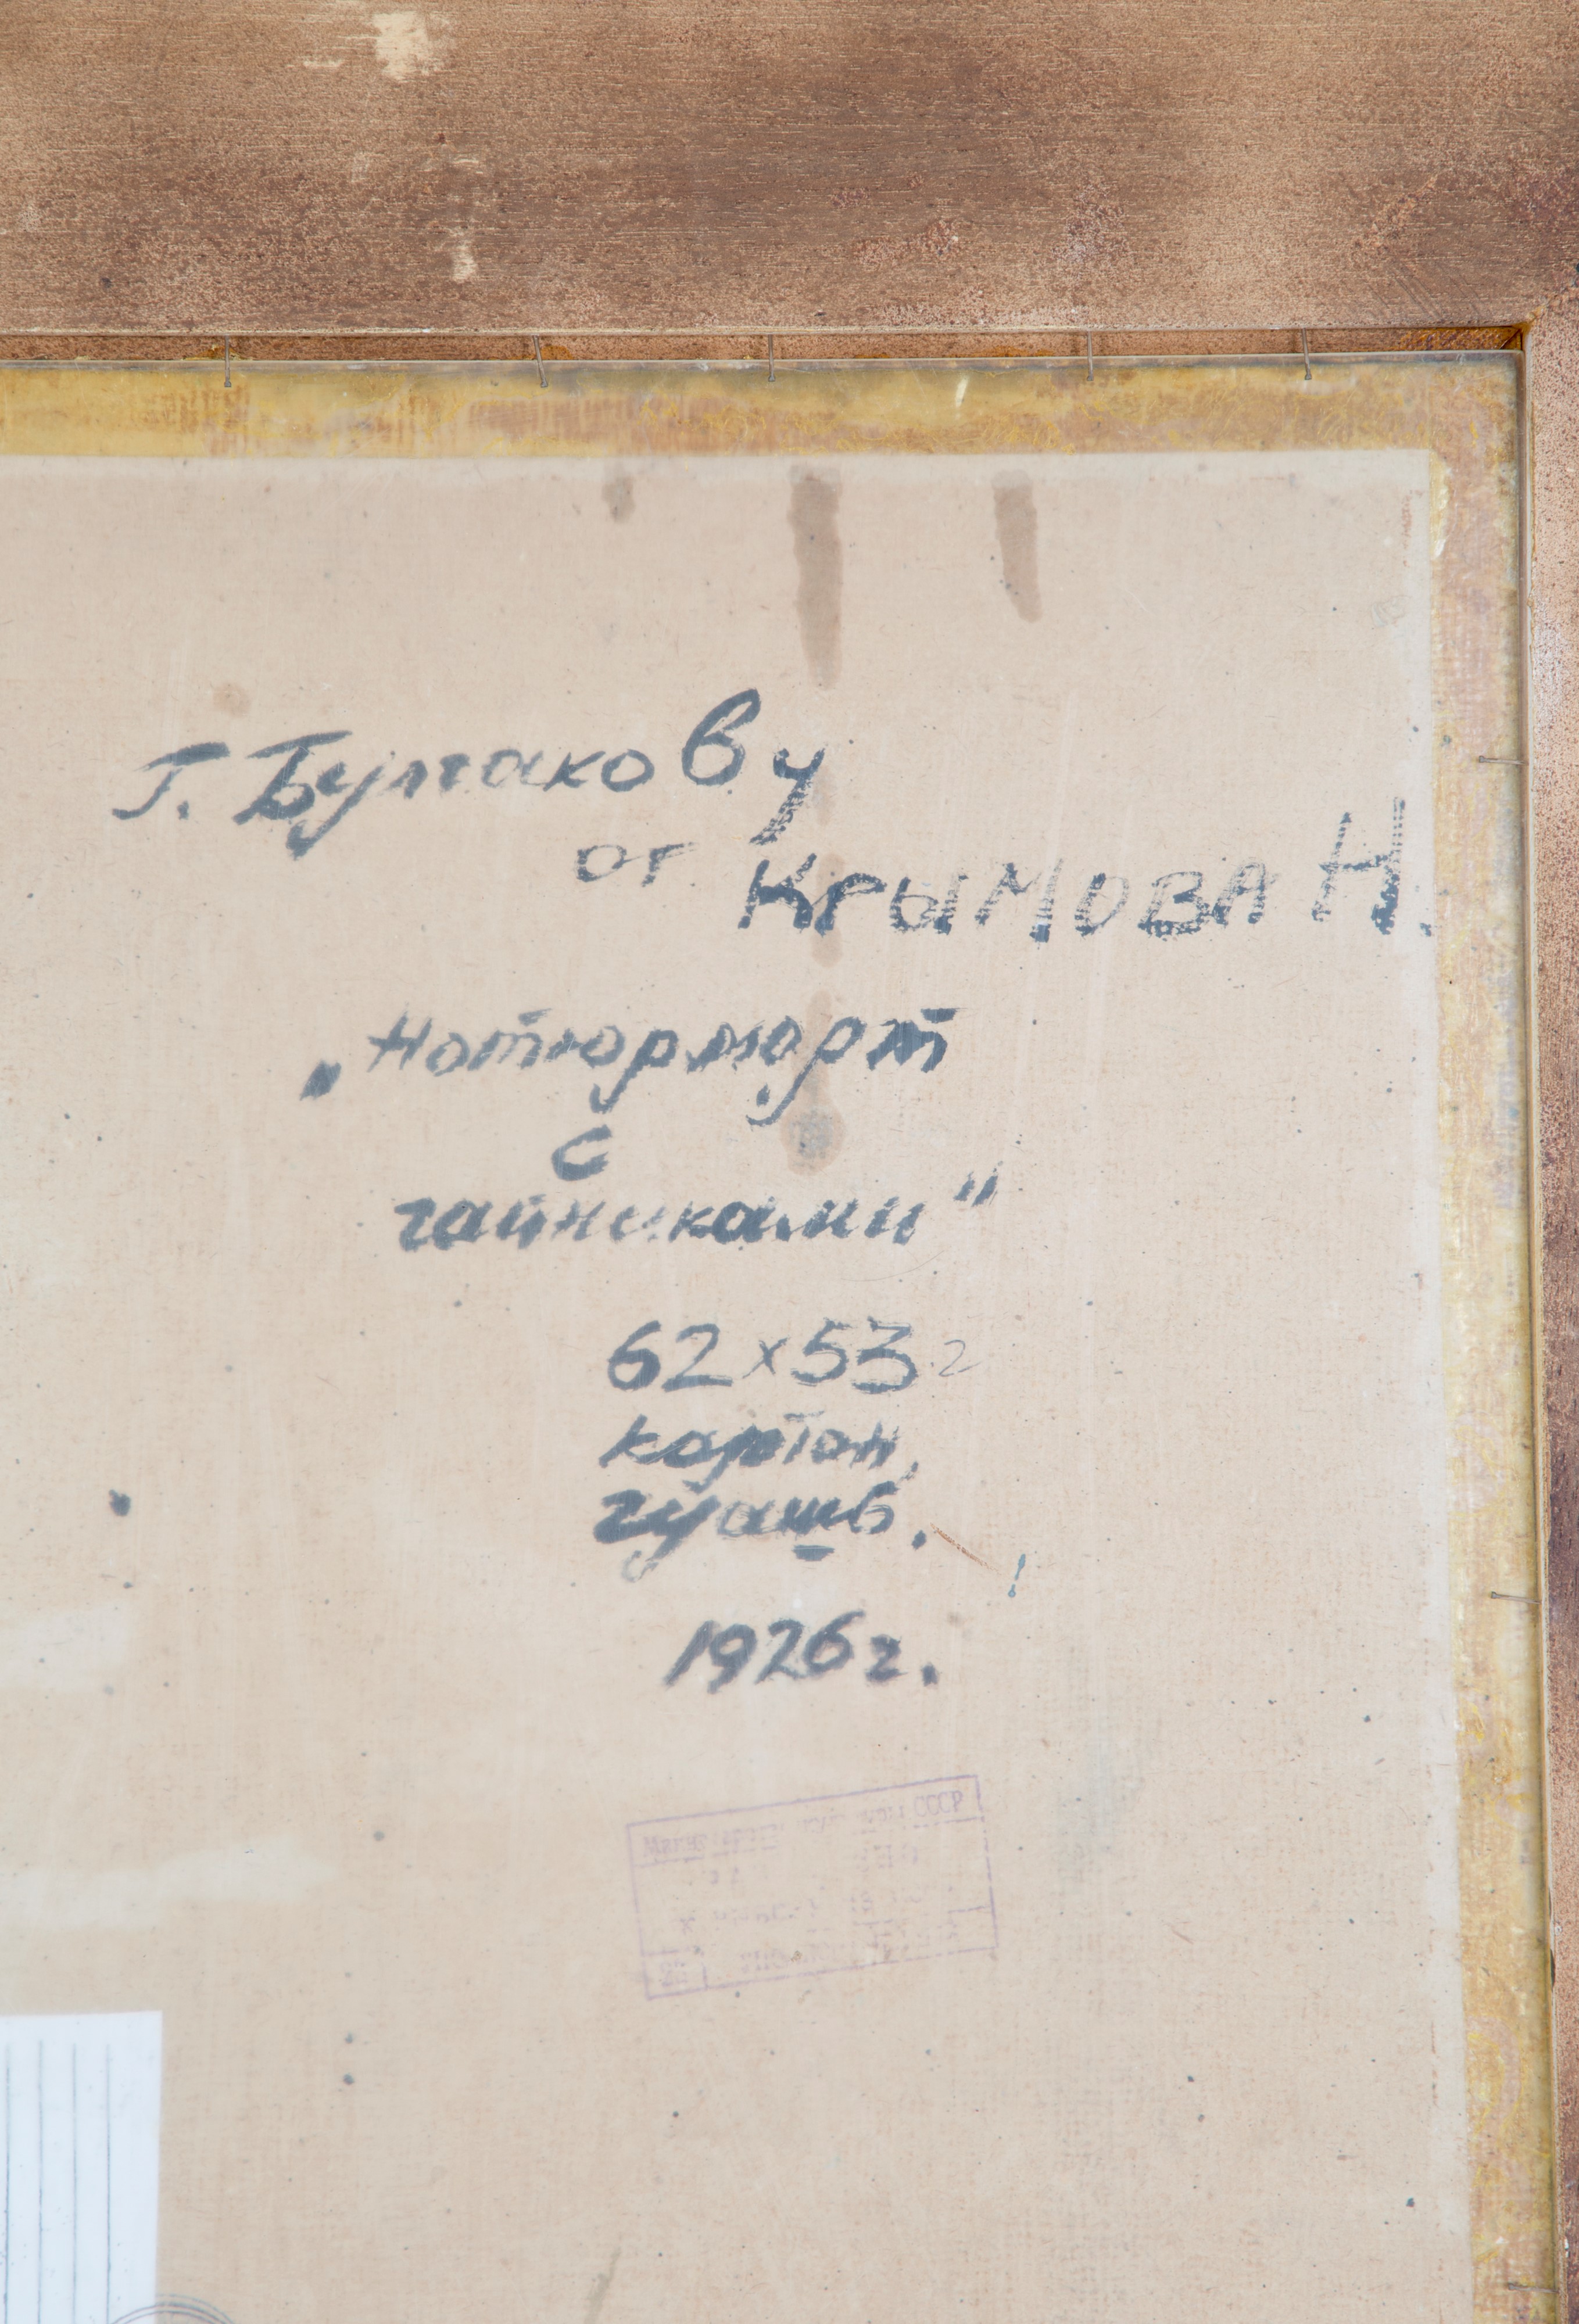 Г. Булгакову
от Крымова Н.
„Натюрморт
с
чайниками"
62х53 2
картон,
гуашь.
1926 г.
СССР